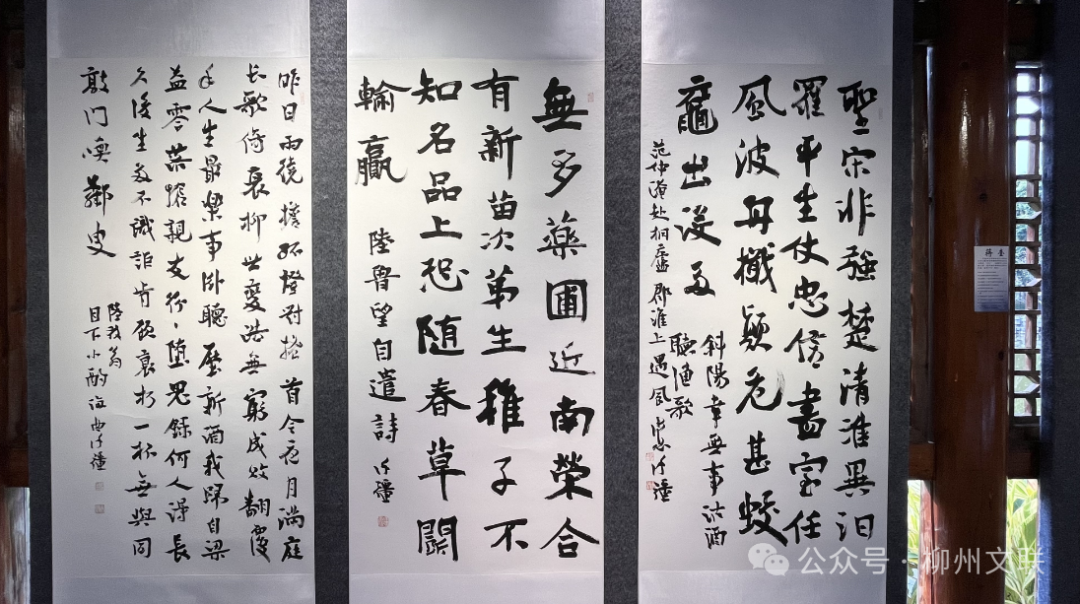 聖宋非强楚清淮異汨
羅平生仗忠信盡室任
風波舟檝顛危甚蛟
黿出沒多
斜陽幸無事沽酒
聽漁歌
范仲淹赴桐廬郡淮上遇風
無多藥圃近南榮合
有新苗次第生稚子不
知名品上恐随春草鬭
輸贏
陸魯望自遣詩
昨日雨繞檐孤燈對搔首今夜月滿庭
長歌倚衰柳世變浩無窮成敗翻覆
手人生最樂事卧聽壓新酒我歸自梁
益零落怪親友紛紛墮鬼錄何人得長
久後生多不識詎肯顧衰朽一杯無與同
敲門喚鄰叟
陸放翁
目下小酌
公众号·柳州文联